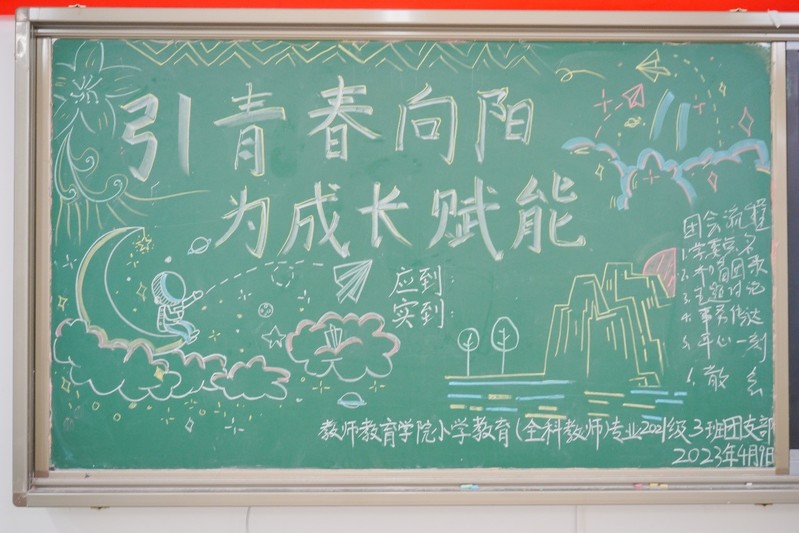 引青春向阳
为成长赋能
应到：
实到：
团会流程
1.学唱
2.
3.主题讨论
4.事务传达
5.平心一刻
6.散会
教师教育学院小学教育(全科教师)专业2021级3班团支部
2023年4月9日